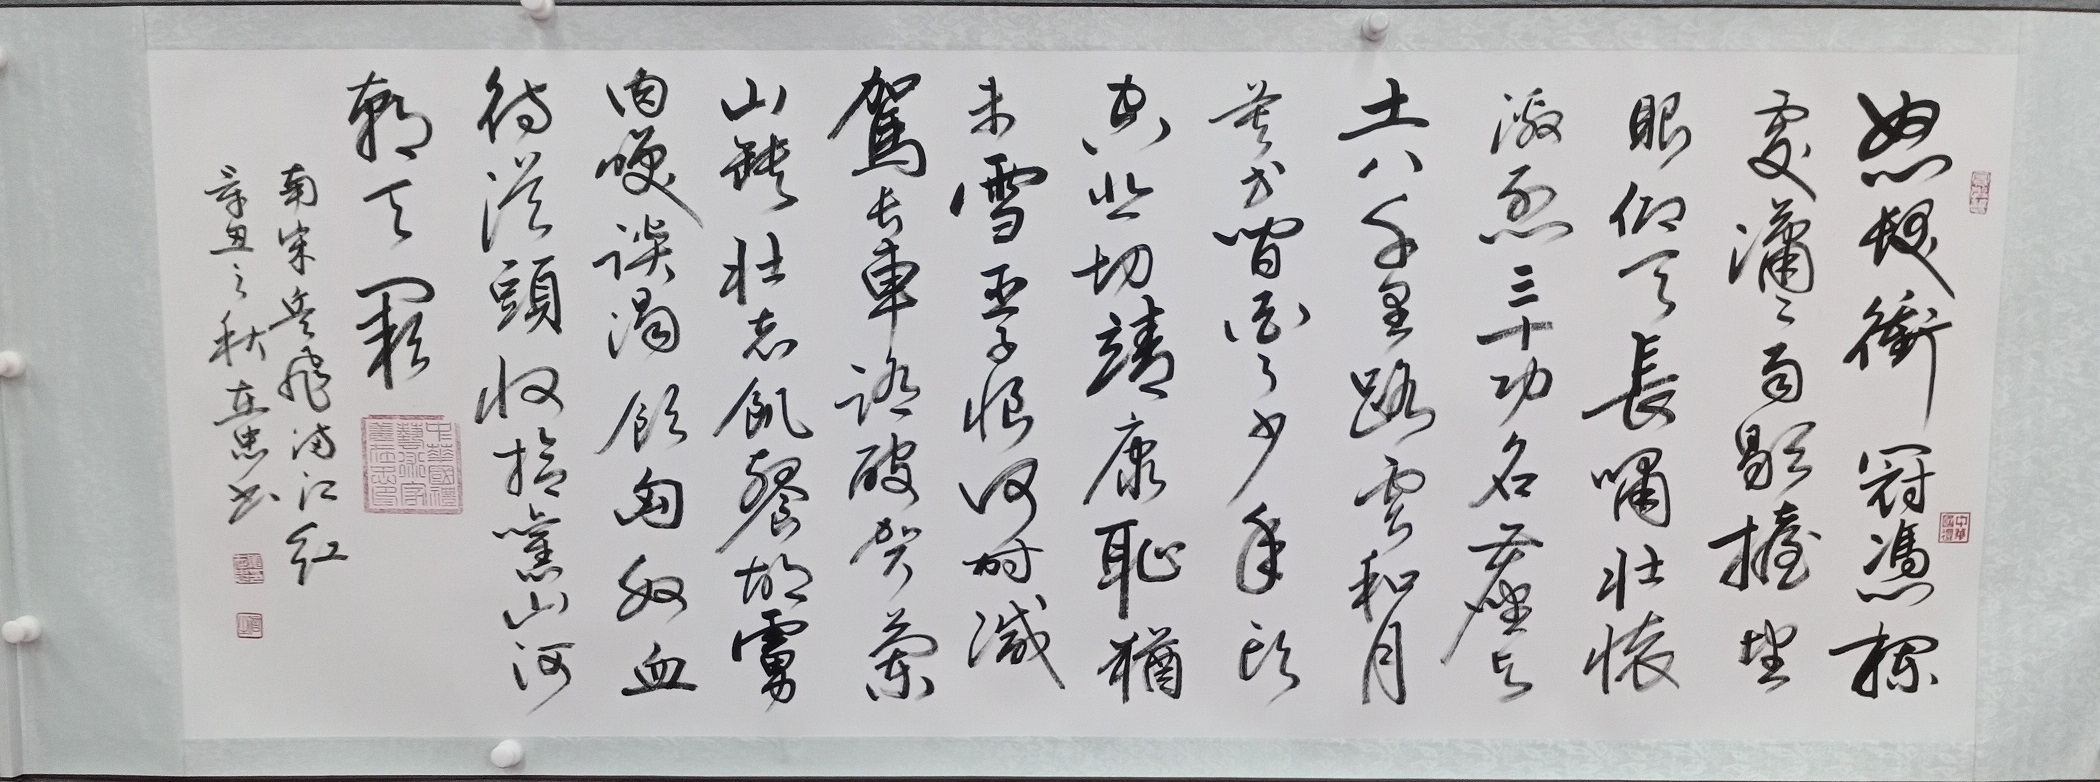 怒髮衝冠憑欄
處瀟〻雨歇擡望
眼仰天長嘯壯懷
激烈三十功名塵與
土八千里路雲和月
莫等閒白了少年頭
空悲切靖康恥猶
未雪臣子恨何時滅
駕長車踏破賀蘭
山缺壯志飢餐胡虜
肉笑談渴飲匈奴血
待從頭收拾舊山河
朝天闕
南宋岳飛滿江紅
辛丑之秋在忠书
中華國禮
中華國禮
藝術家